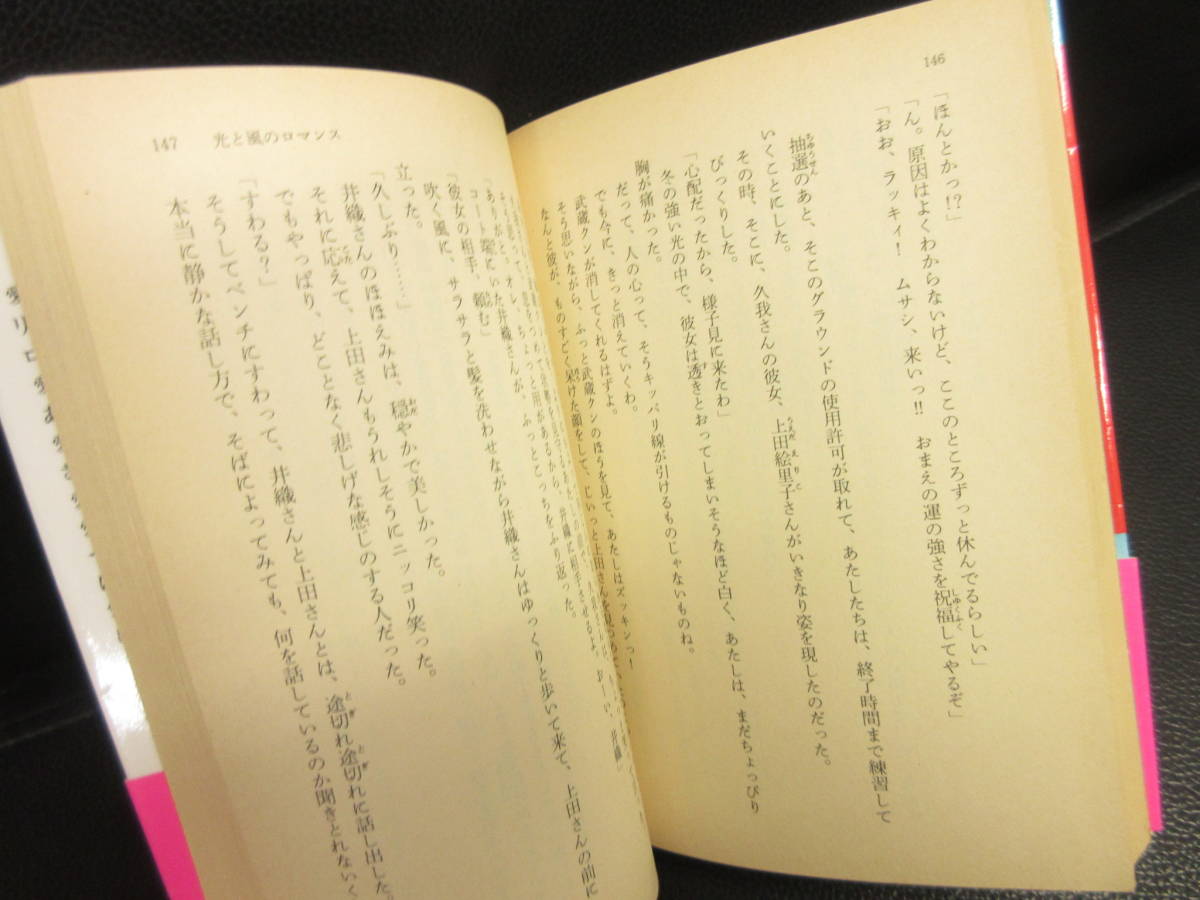 146
「ほんとかっ!?」
「ん。原因はよくわからないけど、ここのところずっと休んでるらしい」
「おお、ラッキィ！　ムサシ、来いっ!!　おまえの運の強さを祝福してやるぞ」
抽選のあと、そこのグラウンドの使用許可が取れて、あたしたちは、終了時間まで練習して
いくことにした。
その時、そこに、久我さんの彼女、上田絵里子さんがいきなり姿を現したのだった。
びっくりした。
「心配だったから、様子見に来たわ」
冬の強い光の中で、彼女は透きとおってしまいそうなほど白く、あたしは、まだちょっぴり
胸が痛かった。
だって、人の心って、そうキッパリ線が引けるものじゃないものね。
でも今に、きっと消えていくわ。
武蔵クンが消してくれるはずよ。
そう思いながら、ふっと武蔵クンのほうを見て、あたしはズッキンっ！
なんと彼が、ものすごく呆けた顔をして、じいっと上田さんを見
147　光と風のロマンス
「ありがと、オレ、ちょっと用があるから、井織に相手させるよ。おーい、井織」
コート端にいた井織さんが、ふっとこっちをふり返った。
「彼女の相手、頼む」
吹く風に、サラサラと髪を洗わせながら井織さんはゆっくりと歩いて来て、上田さんの前に
立った。
「久しぶり……」
井織さんのほほえみは、穏やかで美しかった。
それに応えて、上田さんもうれしそうにニッコリ笑った。
でもやっぱり、どことなく悲しげな感じのする人だった。
「すわる？」
そうしてベンチにすわって、井織さんと上田さんとは、途切れ途切れに話し出した。
本当に静かな話し方で、そばによってみても、何を話しているのか聞きとれないく